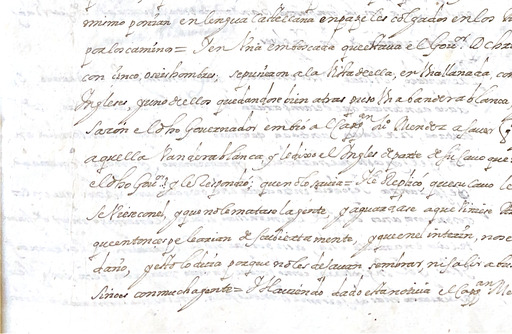 mismo ponian en lengua Castellana en papeles colgados en los
por los caminos = Y en Una emboscada que estaua el Gou.or D cha
con cinco, o seis hombres, se pusieron a la Vista de ella, en Un llanada, co
Ingleses, y uno de ellos quedandose bien atras puso Una bandera blanca
Sazon el dho Gouernador embio a el Capp.an Mendez a sauer
aquella Vandera blanca, y le dixo el Ingles de parte de su Cauo que
el dho Gou.or y le Respondio, que no lo sauia = Replicó que su cauo
se Viese con el, y que no le matase la gente, y aguardase a que Viniese
que entonces pelearian de descubiertamente, y que en el interin, no se
daño, y esto lo decia porque no les dexauan sembrar, ni salir a bus
Sino es con mucha gente = Y hauiendo dado esta noticia el Capp.an Me